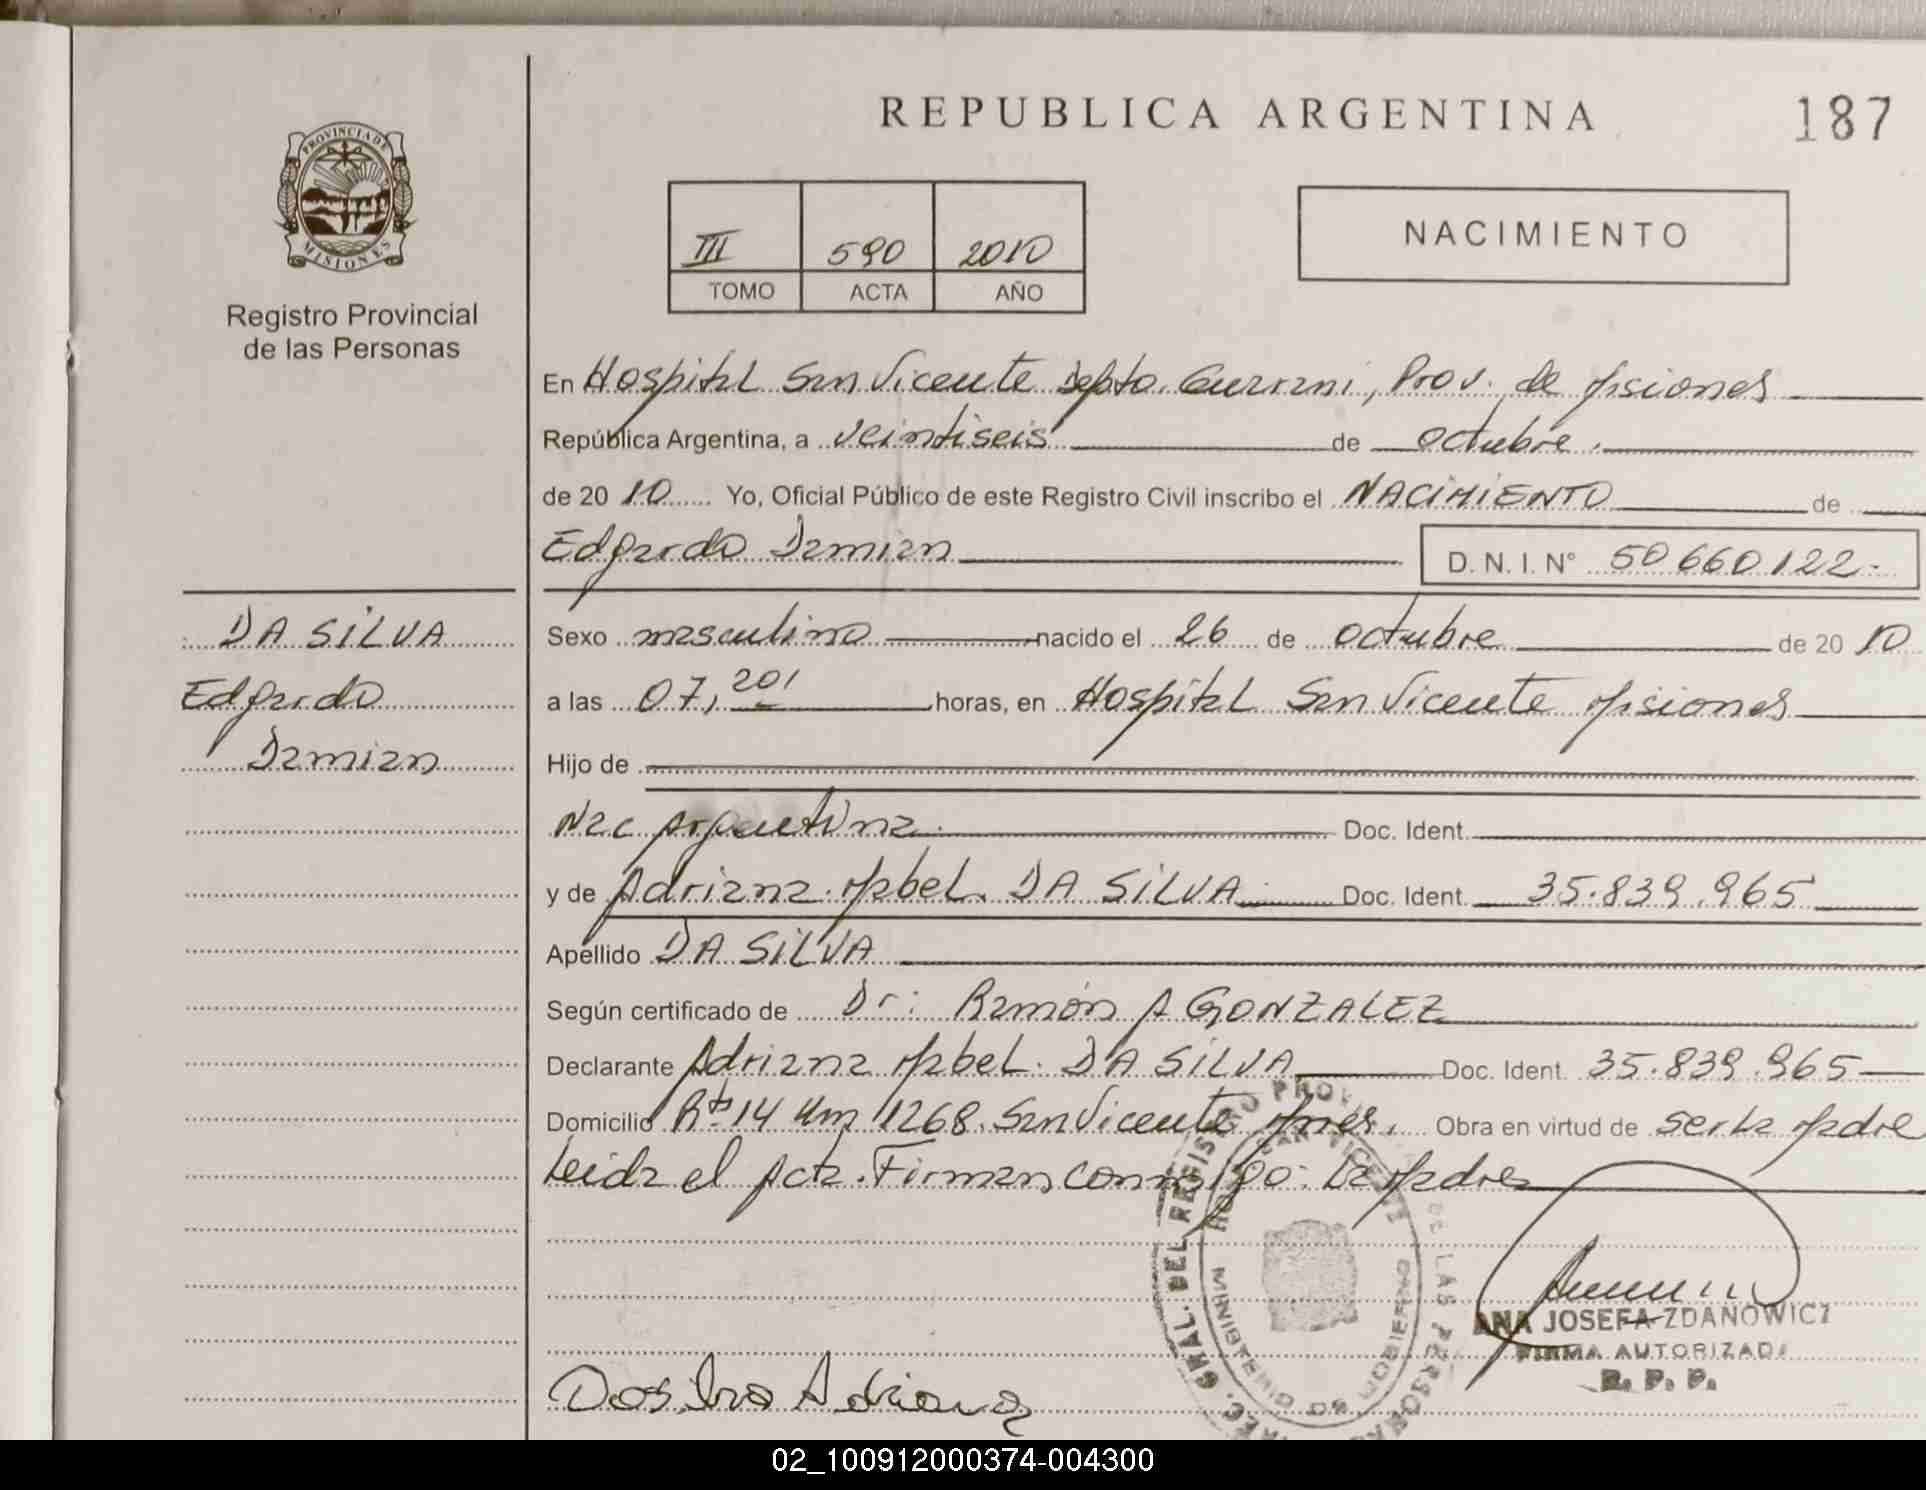 REPUBLICA ARGENTINA
187
PROVINCIA DE
MISIONES
Registro Provincial
de las Personas
III 590 2010
TOMO ACTA AÑO
NACIMIENTO
En Hospital San Vicente Depto. Guarani, Prov. de Misiones
República Argentina, a veintiseis de octubre.
de 20 10 Yo, Oficial Público de este Registro Civil inscribo el NACIMIENTO de
Edgardo Damian D. N. I. N° 50660122.-
DA SILVA
Edgardo
Damian
Sexo masculino nacido el 26 de octubre de 20 10
a las 07, 20 horas, en Hospital San Vicente Misiones
Hijo de
Nac Argentina. Doc. Ident.
y de Adriana Mabel. DA SILVA Doc. Ident. 35.839.965
Apellido DA SILVA
Según certificado de Dr: Ramón A GONZALEZ
Declarante Adriana Mabel. DA SILVA Doc. Ident. 35.839.965
Domicilio Rta 14 Km 1268. San Vicente Mnes. Obra en virtud de ser la Madre
Leida el Acta. Firman conmigo: La Madre
REC. GRAL. DEL REGISTRO PROV DE LAS PERSONAS
MINISTERIO DE GOBIERNO
ANA JOSEFA ZDANOWICZ
FIRMA AUTORIZADA
R. P. P.
Adriana
02_100912000374-004300